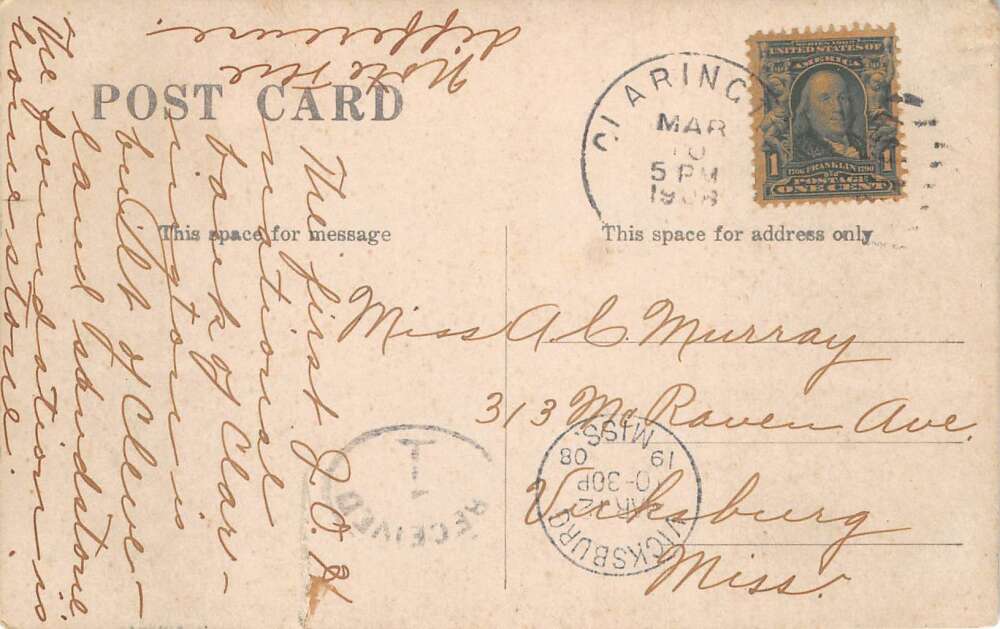 POST CARD
This space for message
This space for address only
CLARING
MAR
10
5 PM
1908
SERIES 1902
UNITED STATES OF
AMERICA
1 1
1706 FRANKLIN 1790
POSTAGE
ONE CENT
Miss A. C. Murray
313 McRaven Ave.
Vicksburg
Miss.
The first
national
bank of Clar-
ington is
built of Cleve-
land sandstone.
The foundation is
limestone.
Note the
difference.
J. O. B.
RECEIVED
1
VICKSBURG
MISS.
19 08
0-30P